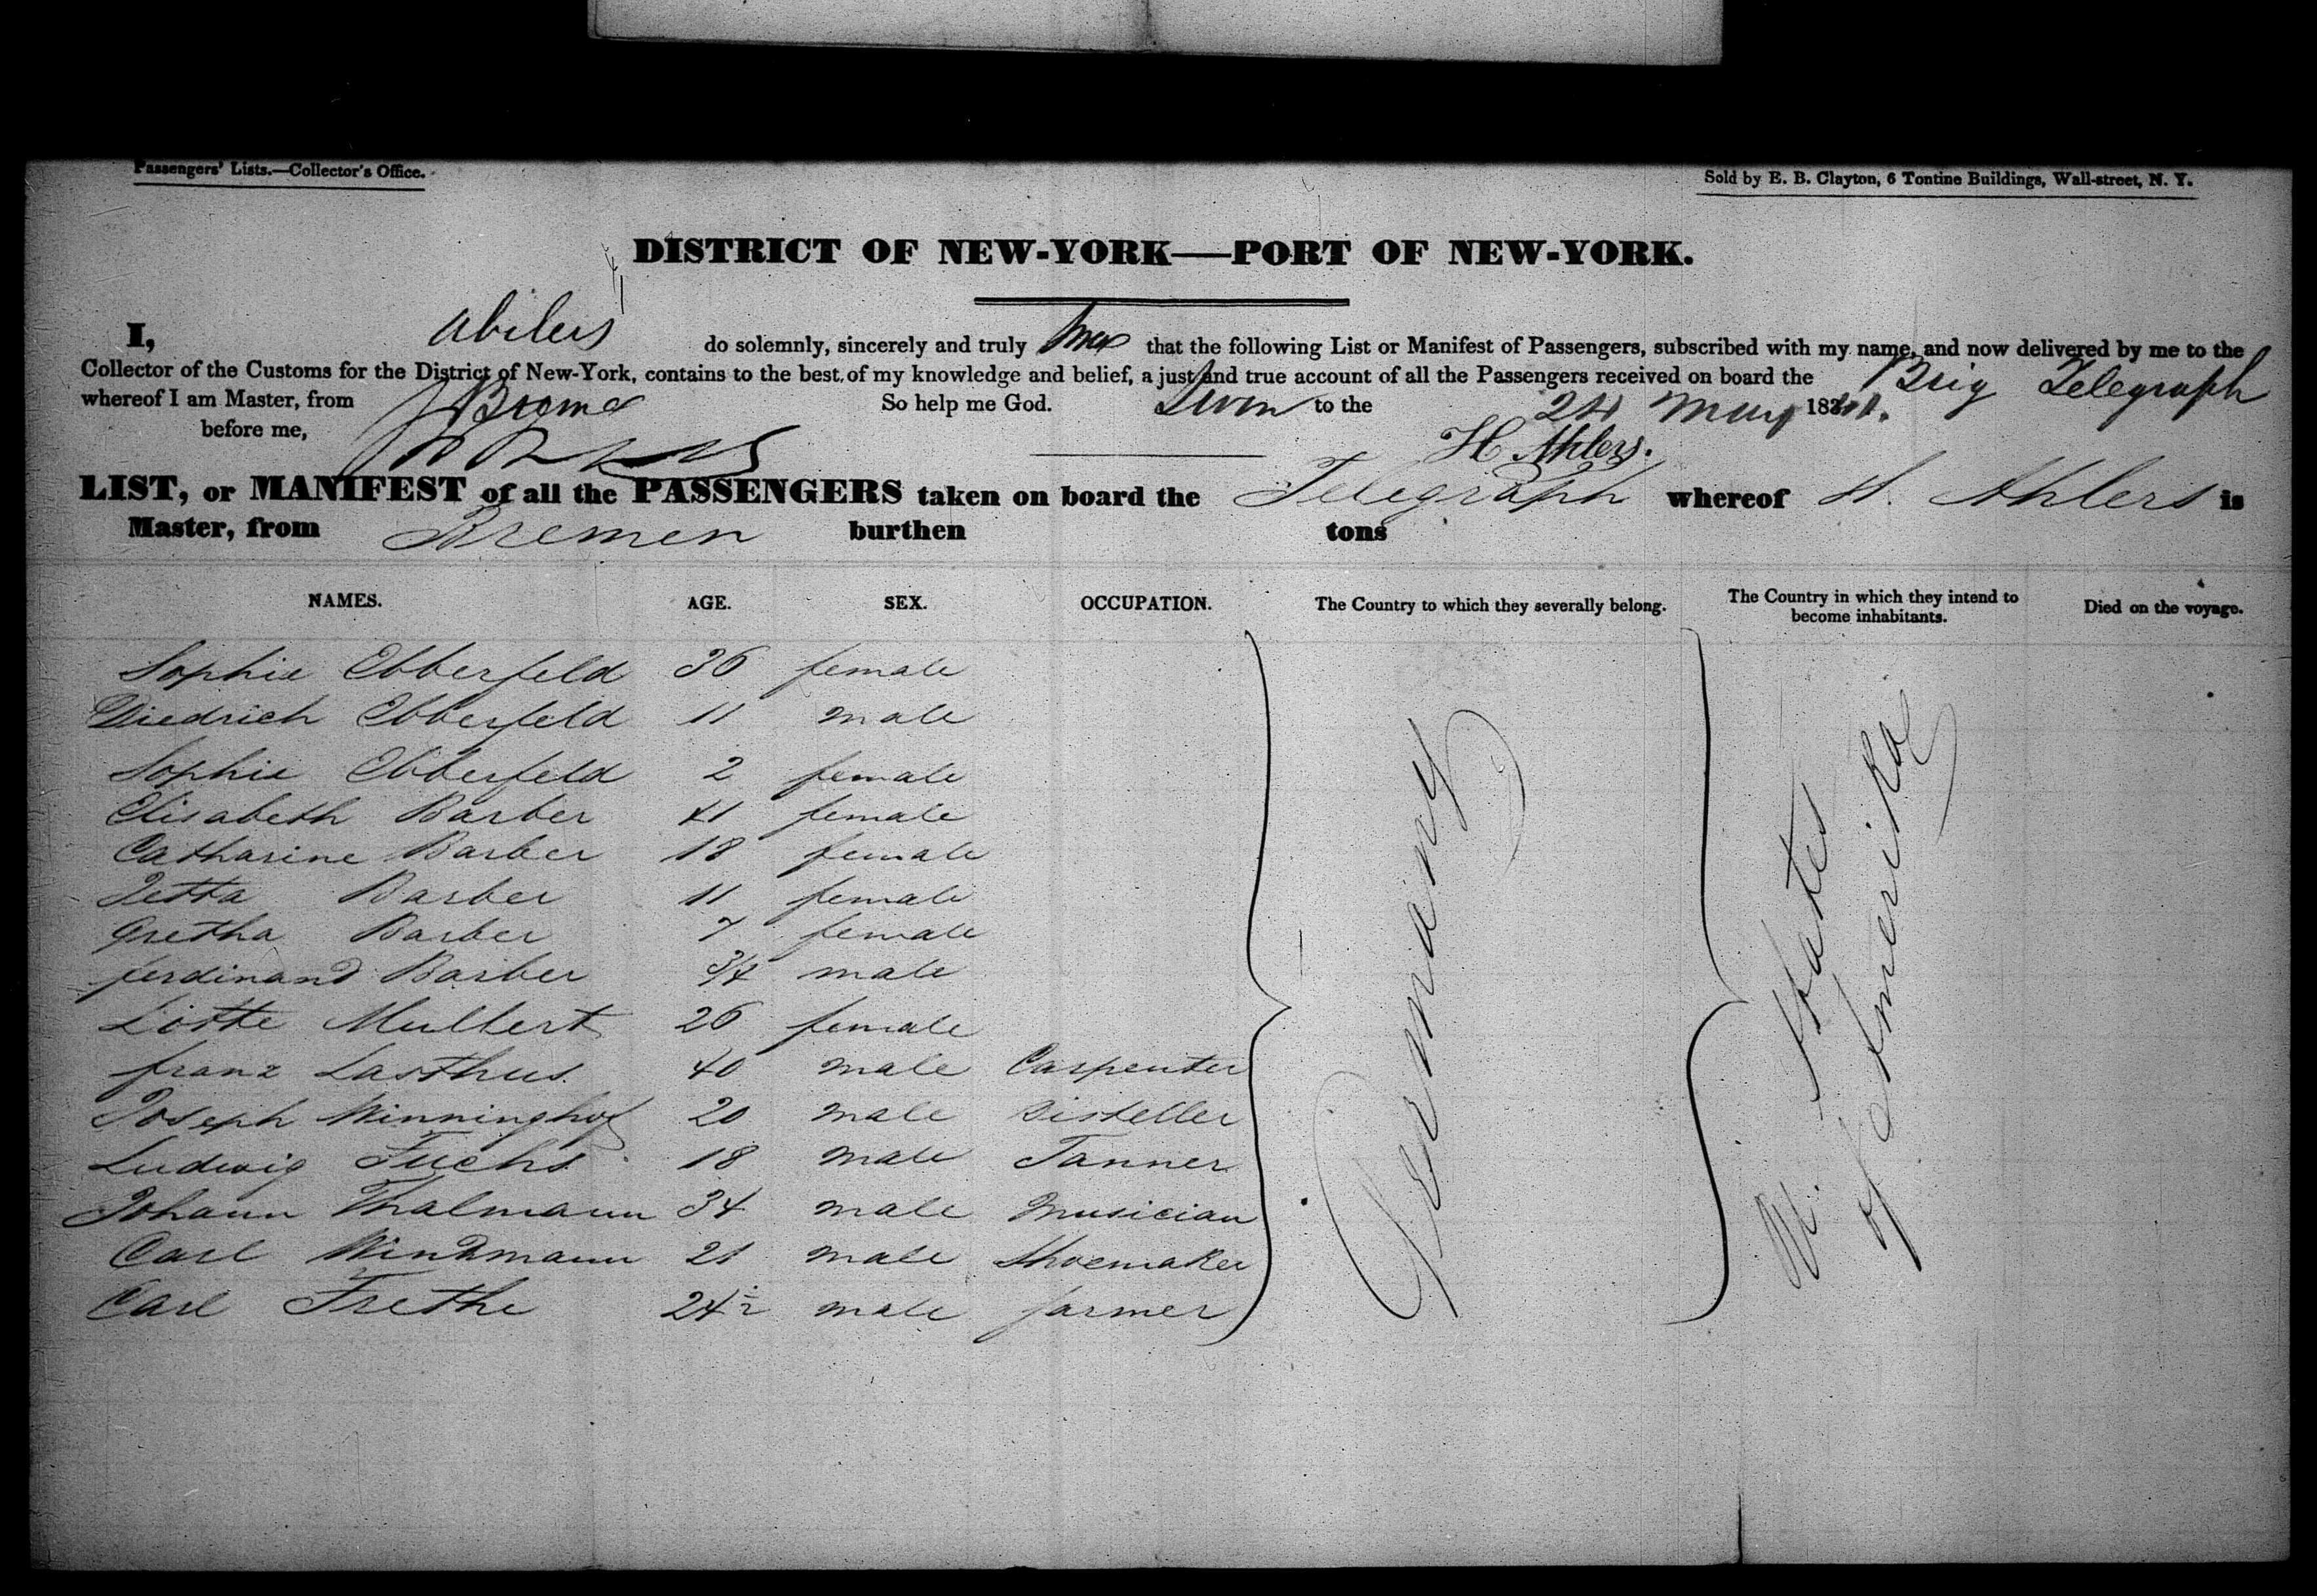 Passengers' Lists.—Collector's Office.
Sold by E. B. Clayton, 6 Tontine Buildings, Wall-street, N. Y.
DISTRICT OF NEW-YORK—PORT OF NEW-YORK.
I, do solemnly, sincerely and truly that the following List or Manifest of Passengers, subscribed with my name, and now delivered by me to the
Collector of the Customs for the District of New-York, contains to the best of my knowledge and belief, a just and true account of all the Passengers received on board the Brig Telegraph
whereof I am Master, from So help me God. Sworn to the 24 May 18
before me, H Ahlers.
LIST, or MANIFEST of all the PASSENGERS taken on board the Telegraph whereof H. Ahlers is
Master, from Bremen burthen tons
NAMES. AGE. SEX. OCCUPATION. The Country to which they severally belong. The Country in which they intend to become inhabitants. Died on the voyage.
Sophie Ebberfeld 36 female
Diedrich Ebberfeld 11 male
Sophie Ebberfeld 2 female
Elisabeth Barber 41 female
Catharine Barber 18 female
Jetta Barber 11 female
Gretha Barber 7 female
ferdinand Barber 3/4 male
Lotte Mullert 26 female
franz Lasthus 40 male Carpenter
Joseph Winninghof 20 male Disteller
Ludwig Fuchs 18 male Tanner
Johann Thalmann 34 male Musician
Carl Windmann 21 male Shoemaker
Carl Frethe 24 1/2 male farmer
Germany
U. States
of Amerika